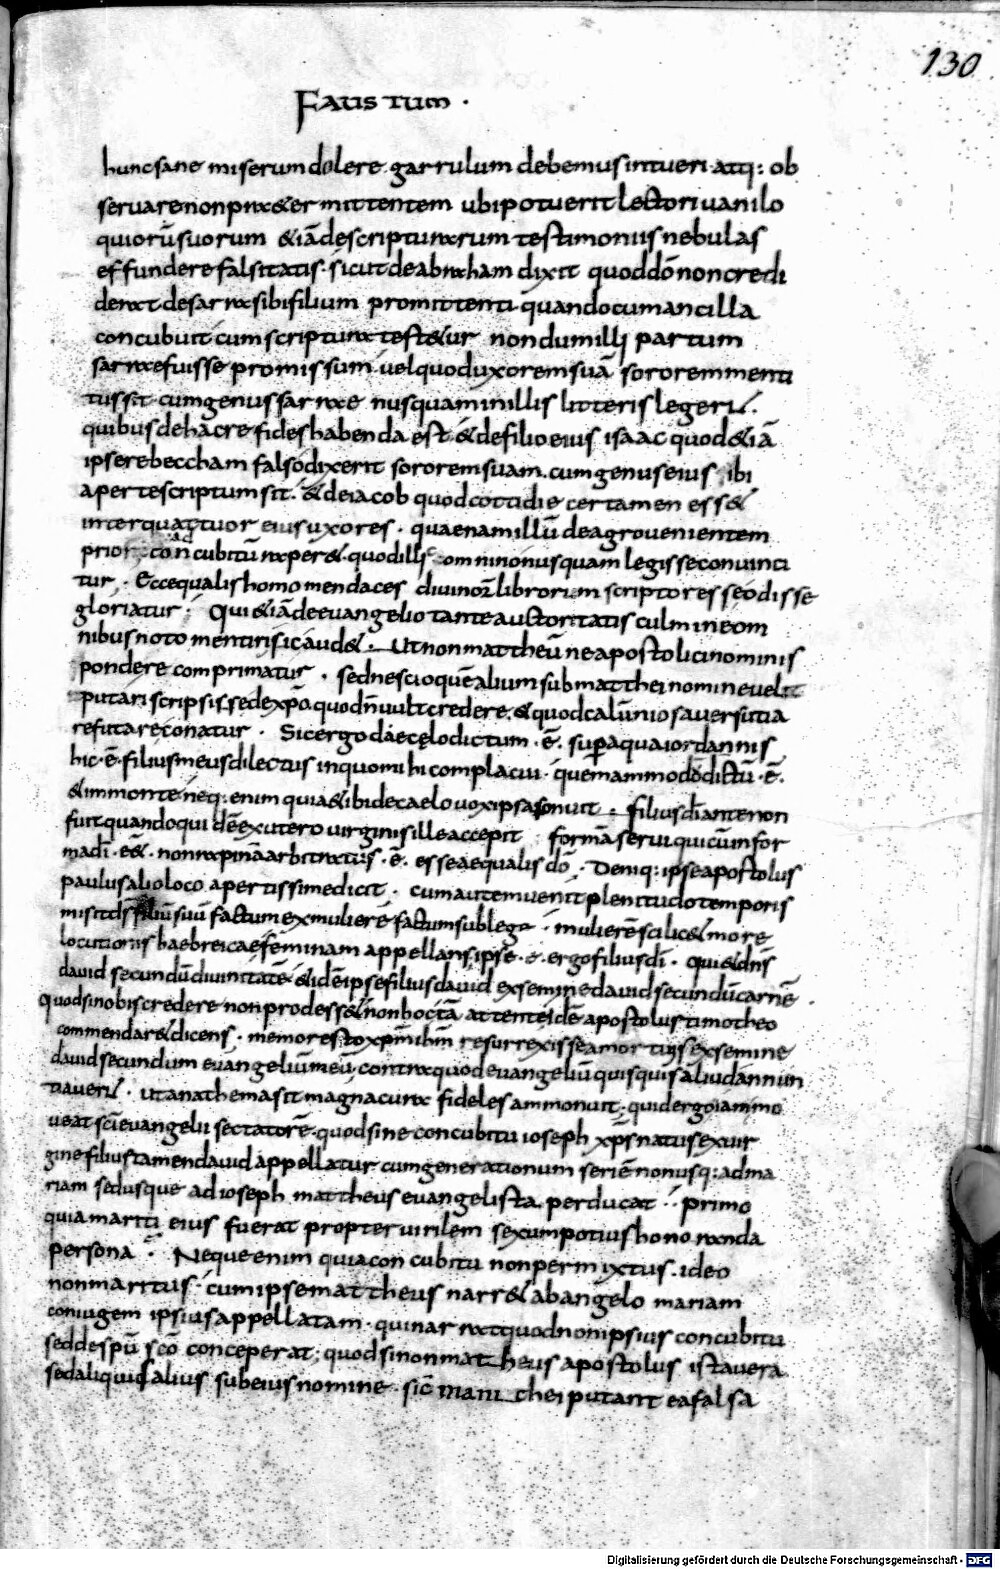 130
FAUSTUM ·
hunc sane miserum dolere garrulum debemus intueri atq: ob
servare non prætermittentem ubi potuerit lectori vanilo
quiorũ suorum &iã de scripturarum testimoniis nebulas
effundere falsitatis · sicut de abraham dixit quod dõ non credi
derat de sarra sibi filium promittenti quando cum ancilla
concubuit cum scriptura test&ur nondum illi partum
sarrae fuisse promissum vel quod uxorem suã sororem menti
tus sit cum genus sarrae nusquam in illis litteris legerit ·
quibus de hac re fides habenda est & de filio eius isaac quod &iã
ipse rebeccham falso dixerit sororem suam cum genus eius ibi
aperte scriptum sit · & de iacob quod cottidie certamen ess&
inter quattuor eius uxores · quaenam illũ de agro venientem
prior ad concubitũ raper& · quod illic omnino nusquam legisse convinci
tur · Ecce qualis homo mendaces divinorum librorum scriptores se odisse
gloriatur · Qui &iã de evangelio tante auctoritatis culmine om
nibus noto mentiri sic aud& · Ut non mattheũ ne apostolici nominis
pondere comprimatur · sed nescio quẽ alium sub matthei nomine velit
putari scripsisse de xp̃o quod ñ vult credere & quod calũniosa versutia
refutare conatur · Sic ergo da e celo dictum · ẽ · super aqua iordannis
hic · ẽ · filius meus dilectus in quo mihi complacui · quẽmammodo dictũ · ẽ ·
& in monte neq: enim quia & ibi de caelo vox ipsa sonuit · filius dĩ ante non
fuit quando quidẽ ex utero virginis ille accepit formã servi qui cum in for
ma dĩ · e&& · non rapinã arbitratus · ẽ · esse aequalis dõ · Deniq: ipse apostolus
paulus alio loco apertissime dicit · cum autem venit plenitudo temporis
misit ds̃ filiũ suũ factum ex muliere factum sub lege · mulierẽ scilic& more
locutionis haebreicae feminam appellans · ipse · ẽ · ergo filius dĩ · qui & dñs
david secundũ divinitatẽ & idẽ ipse filius david ex semine david secundũ carnẽ ·
Quod si nobis credere non prodess& non hoc tã attente idẽ apostolus timotheo
commendar& dicens · memor esto xpm̃ ihm̃ resurrexisse a mortuis ex semine
david secundum evangeliũ meũ · contra quod evangeliũ quisquis aliud annun
tiaverit · ut anathema sit magna cura fideles ammonuit · quid ergo iam mo
veat sc̃i evangelii sectatorẽ · quod sine concubitu ioseph xp̃s natus ex vir
gine filius tamen david appellatur cum generationum seriẽ non usq: ad ma
riam sed usque ad ioseph mattheus evangelista perducat · primo
quia mariti eius fuerat propter virilem sexum potius honoranda
persona · Neque enim quia concubitu non permixtus · ideo
non maritus · cum ipse mattheus narr& ab angelo mariam
coniugem ipsius appellatam · qui narrat quod non ipsius concubitu
sed de spũ sc̃o conceperat ; quod si non mattheus apostolus ista vera
sed aliquis alius sub eius nomine · sic manichei putant ea falsa
Digitalisierung gefördert durch die Deutsche Forschungsgemeinschaft - DFG